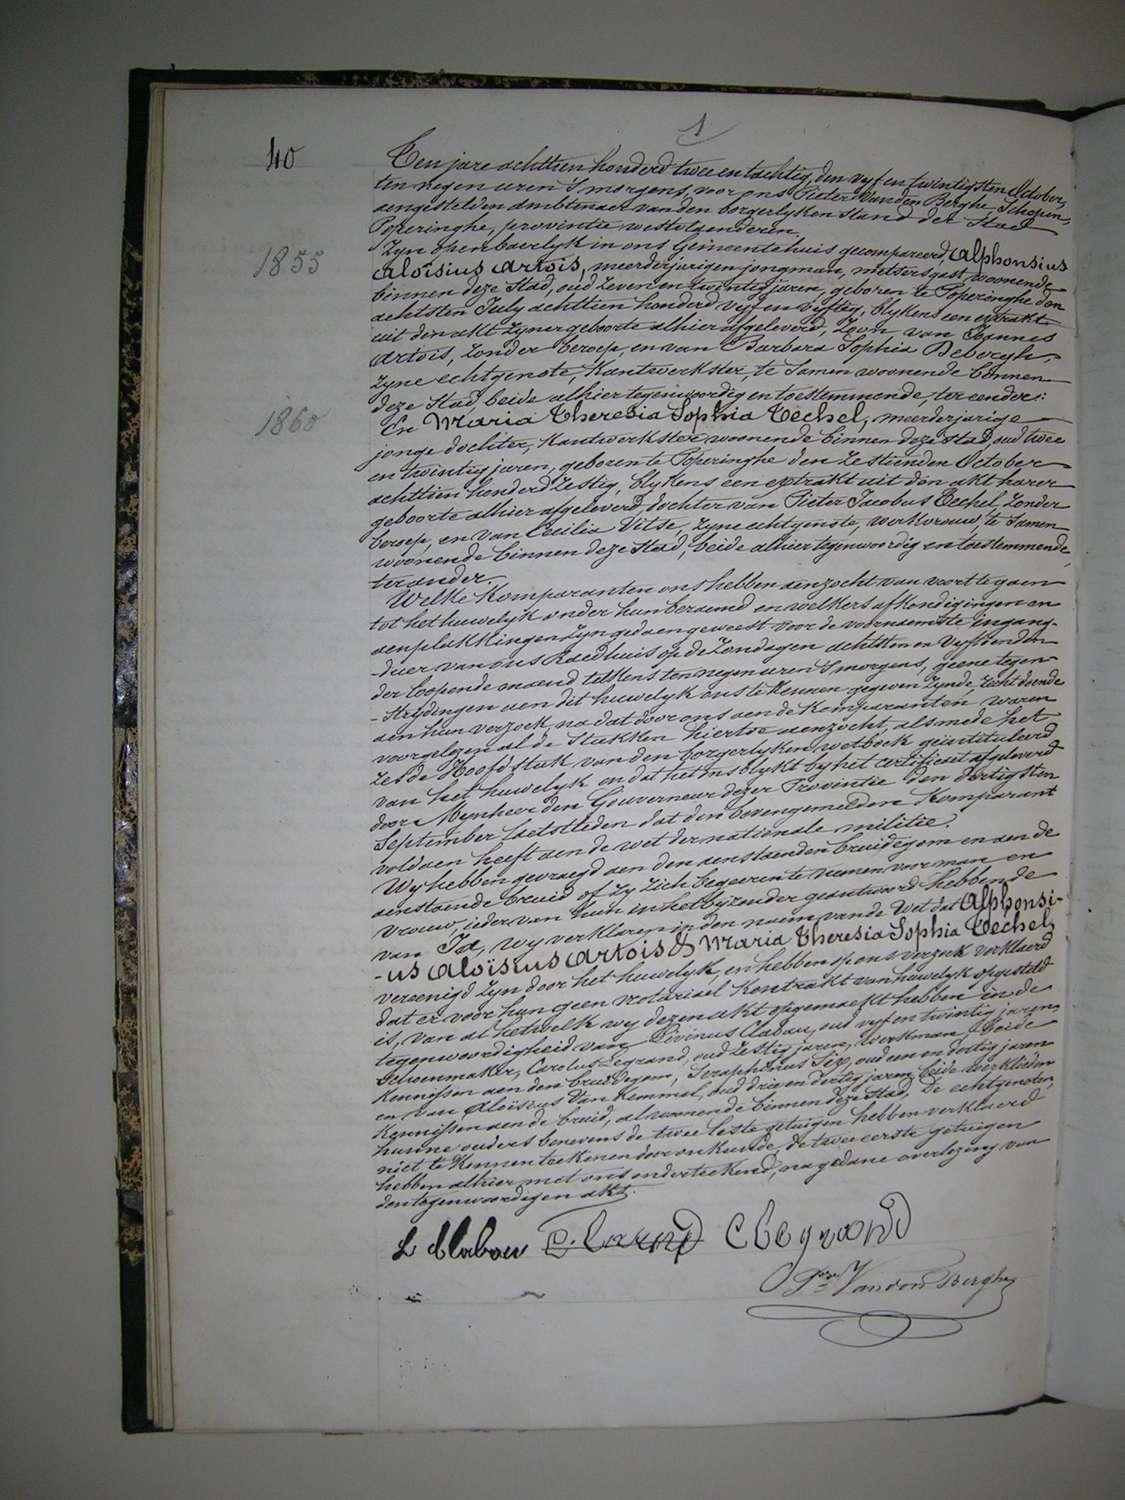 1
40
Ten jare achttien honderd twee en tachtig, den vyf en twintigsten October,
ten negen uren 's morgens, voor ons Pieter Vanden Berghe Schepen,
aengestelden ambtenaer van den borgerlyken Stand der Stad
Poperinghe, provintie westvlaenderen.
Zyn openbaerlyk in ons Gemeentehuis gecompareerd, Alphonsius
1855
Aloïsius Artois, meerderjarigen jongman, metsersgast, woonende
binnen deze Stad, oud zeven en twintig jaren, geboren te Poperinghe den
achtsten July achttien honderd vyf en vyftig, blykens een extrakt
uit den akt zyner geboorte alhier afgeleverd, zoon van Joannes
Artois, zonder beroep, en van Barbara Sophia Debergh,
zyne echtgenote, kantwerkster, te samen woonende binnen
deze Stad, beide alhier tegenwoordig en toestemmende, ter eender:
1860
En Maria Theresia Sophia Techel, meerderjarige
jonge dochter, kantwerkster woonende binnen deze Stad, oud twee
en twintig jaren, geboren te Poperinghe den zestienden October
achttien honderd zestig, blykens een extrakt uit den akt harer
geboorte alhier afgeleverd, dochter van Pieter Jacobus Techel, zonder
beroep, en van Cecilia Vitse, zyne echtgenote, werkvrouw, te samen
woonende binnen deze Stad, beide alhier tegenwoordig en toestemmende,
ter ander.
Welke Komparanten ons hebben aenzocht van voort te gaen
tot het huwelyk onder hun beraemd en welkers afkondigingen en
aenplakkingen zyn gedaen geweest voor de voornaemste ingang-
-deur van ons Raedhuis op de Zondagen achtsten en vyftienden
der loopende maend telkens ten negen uren 's morgens, geene tegen-
-strydingen aen dit huwelyk ons te kennen gegeven zynde, recht doende
aen hun verzoek, na dat door ons aen de Komparanten waren
voorgelezen al de Stukken hiertoe aenzocht, alsmede het
zesde Hoofdstuk van den borgerlyken wetboek geïntituleerd
van het huwelyk en dat het ons blykt by het certificaet afgeleverd
door Mynheer den Gouverneur dezer Provintie den dertigsten
September laetstleden dat den bovengemelden Komparant
voldaen heeft aen de wet der nationale militie.
Wy hebben gevraegd aen den aenstaenden bruidegom en aen de
aenstaende bruid of zy zich begeeren te nemen voor man en
vrouw, ieder van hun in het byzonder geantwoord hebbende
van Ja, wy verklaren in den naem van de Wet dat Alphonsi-
-us Aloïsius Artois & Maria Theresia Sophia Techel,
vereenigd zyn door het huwelyk, en hebben op ons verzoek verklaerd
dat er voor hun geen notariael Kontrakt van huwelyk opgesteld
is, van al hetwelk wy dezen akt opgemaekt hebben in de
tegenwoordigheid van Livinus Clabau, oud vyf en twintig jaren,
Schoenmaker, Carolus Legrand, oud zestig jaren, werkman, beide
Kennissen aen den bruidegom, Seraphinus Six, oud een en dertig jaren
en van Aloïsius Van Kemmel, oud drie en dertig jaren, beide werklieden
Kennissen aen de bruid, al woonende binnen deze Stad, De echtgenoten,
hunne ouders benevens de twee leste getuigen hebben verklaerd
niet te kennen teekenen door onkunde, de twee eerste getuigen
hebben alhier met ons onderteekend, na gedane overlezing van
den tegenwoordigen akt.
L Clabau C Legrand
Pr Vanden Berghe